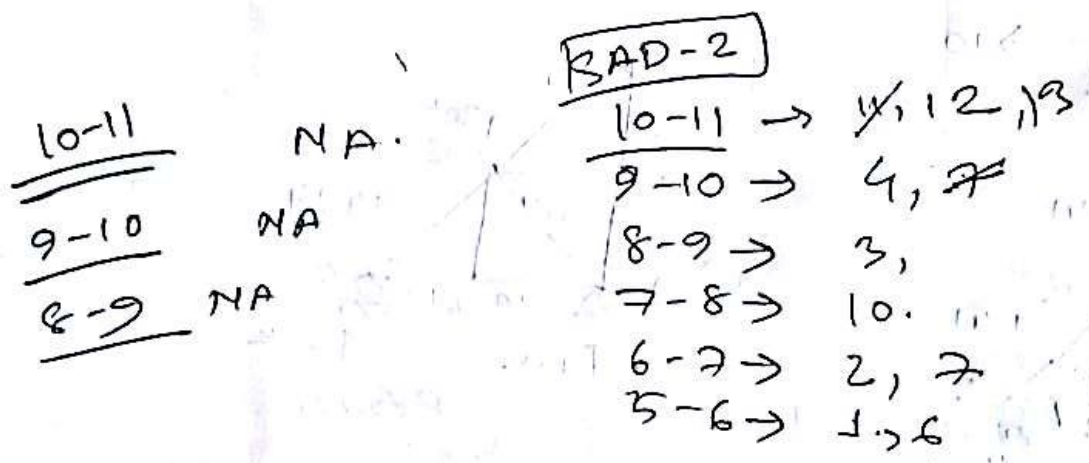 10-11 NA.
9-10 NA
8-9 NA
BAD-2
10-11 → 11, 12, 13
9-10 → 4, 7
8-9 → 3,
7-8 → 10.
6-7 → 2, 7
5-6 → 1, 6